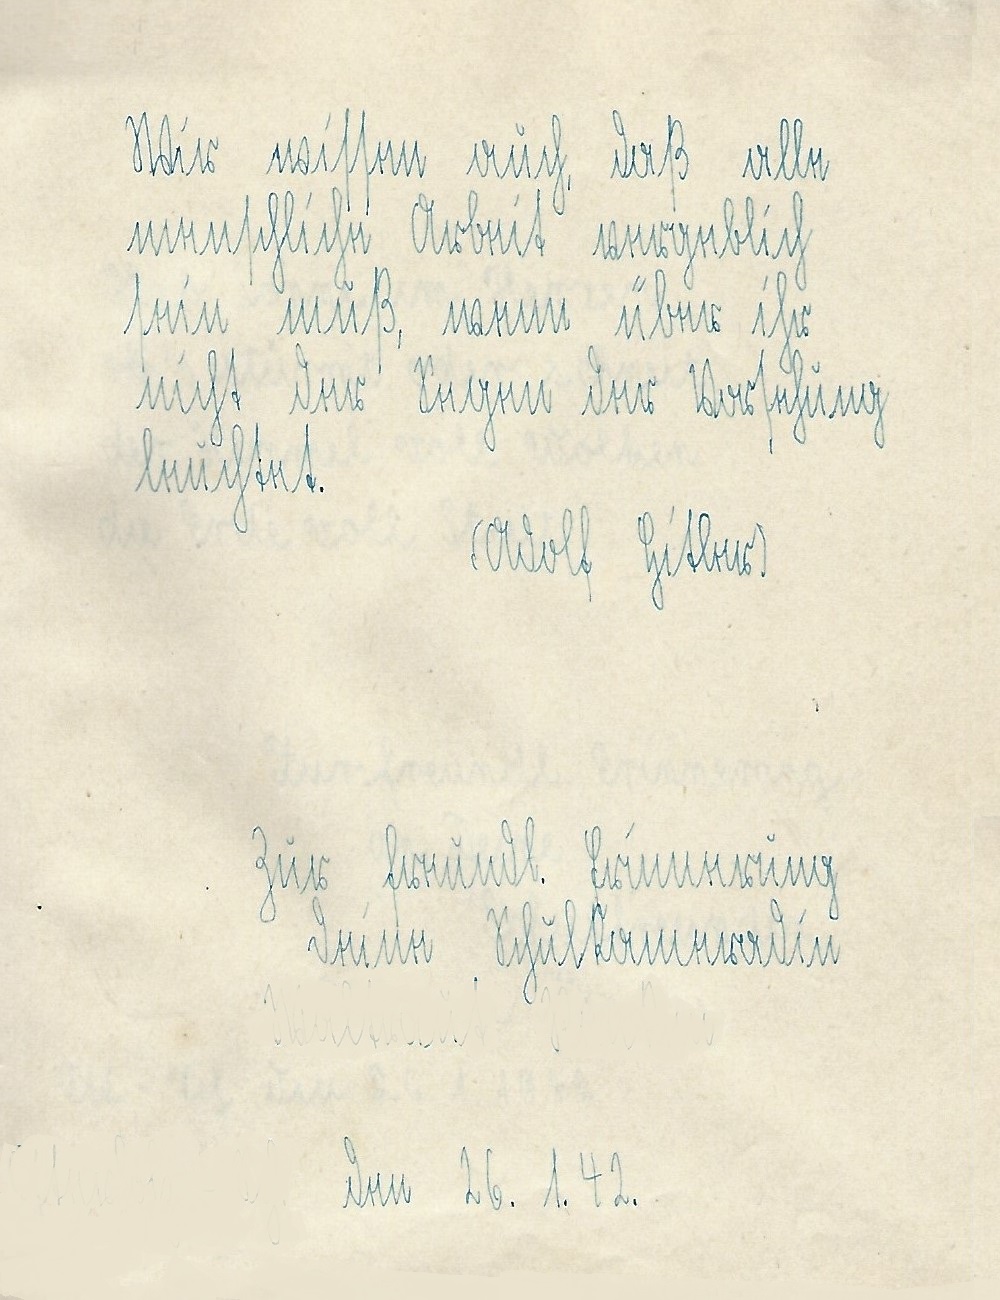 Wir wissen auch, daß alle
menschliche Arbeit vergeblich
sein muß, wenn über ihr
nicht der Segen der Vorsehung
leuchtet.
(Adolf Hitler)
Zur freundl. Erinnerung
Deine Schulkameradin
den 26. 1. 42.